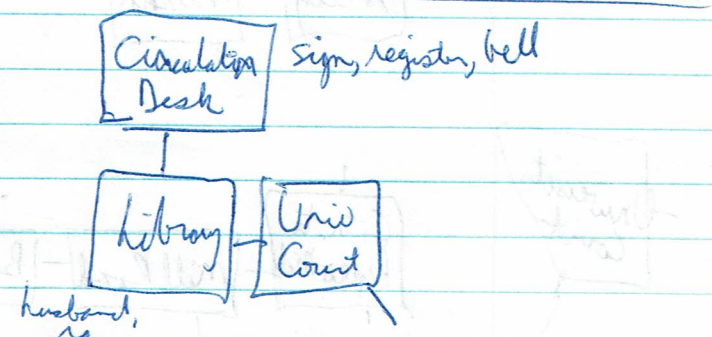 Circulation
Desk
sign, register, bell
Library
Univ
Court
husband,